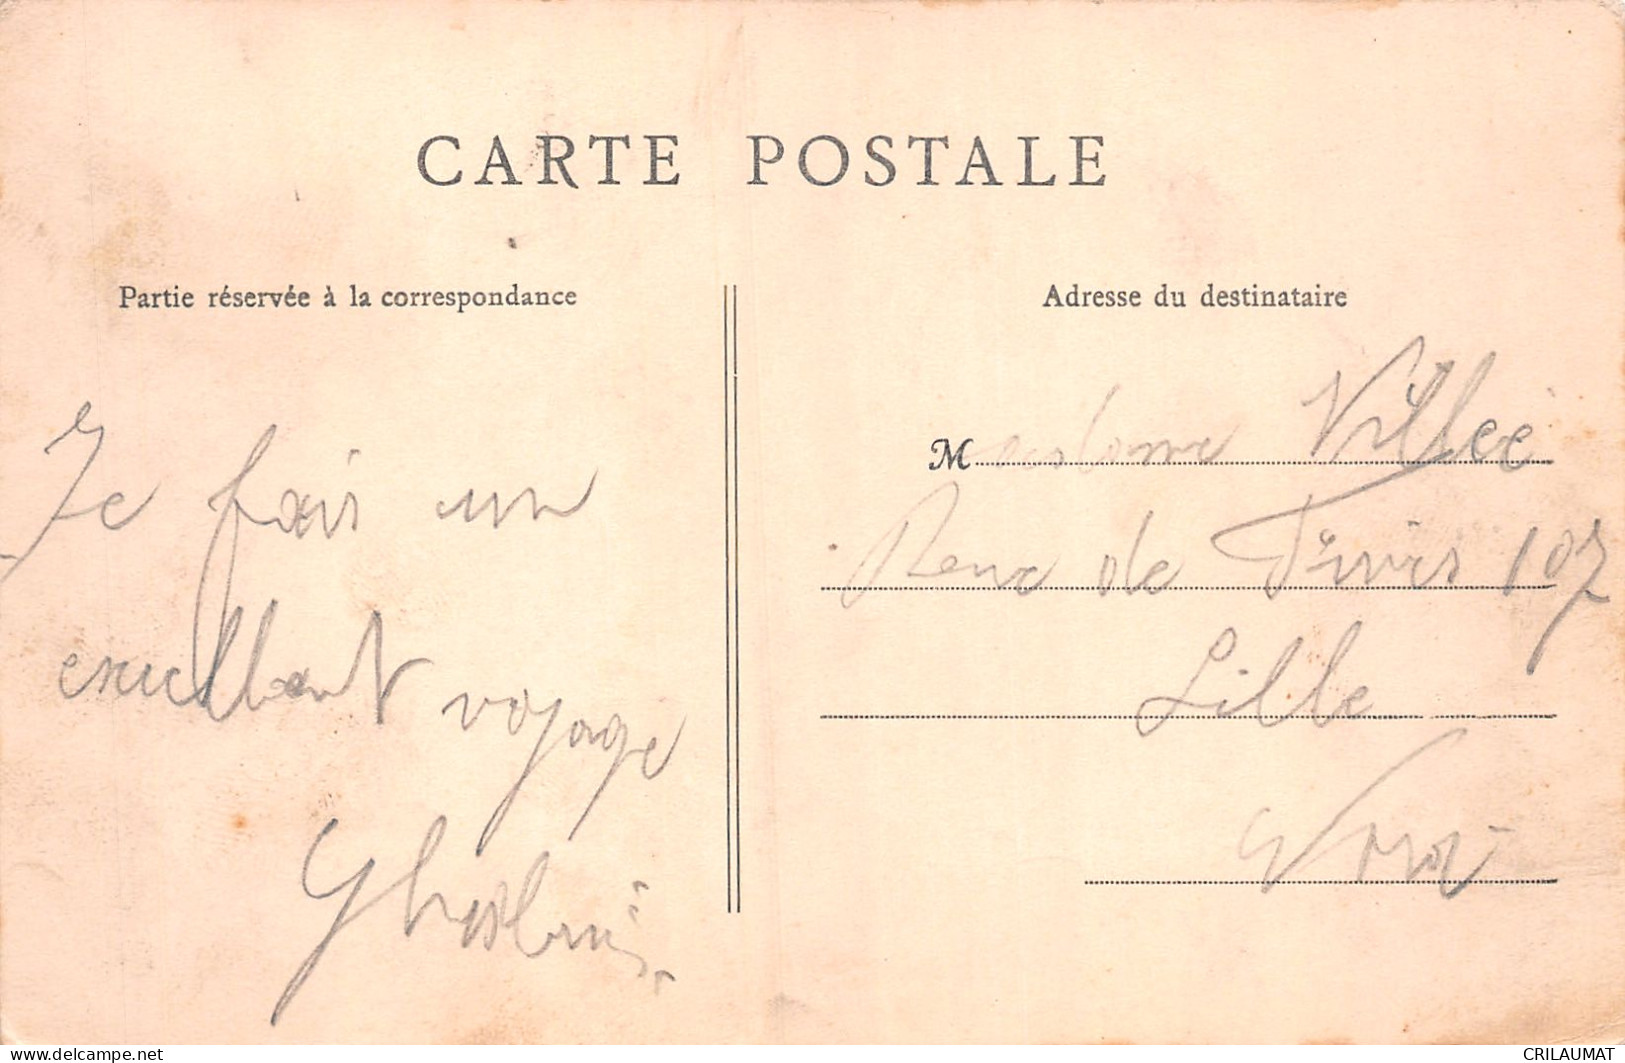 CARTE POSTALE
Partie réservée à la correspondance
Je fais un
excellent voyage
Adresse du destinataire
Madame
Rue de 107
Lille
Nord
www.delcampe.net
CRILAUMAT